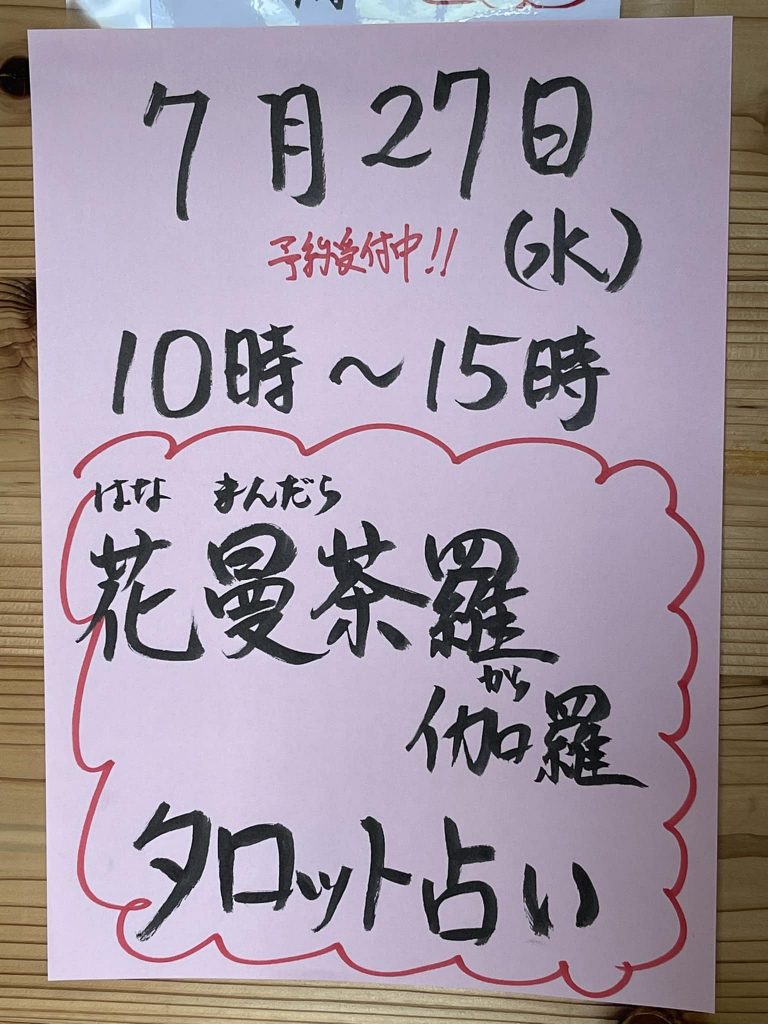 7月27日
(水)
予約受付中!!
10時〜15時
はな まんだら
花曼荼羅
から
伽羅
タロット占い